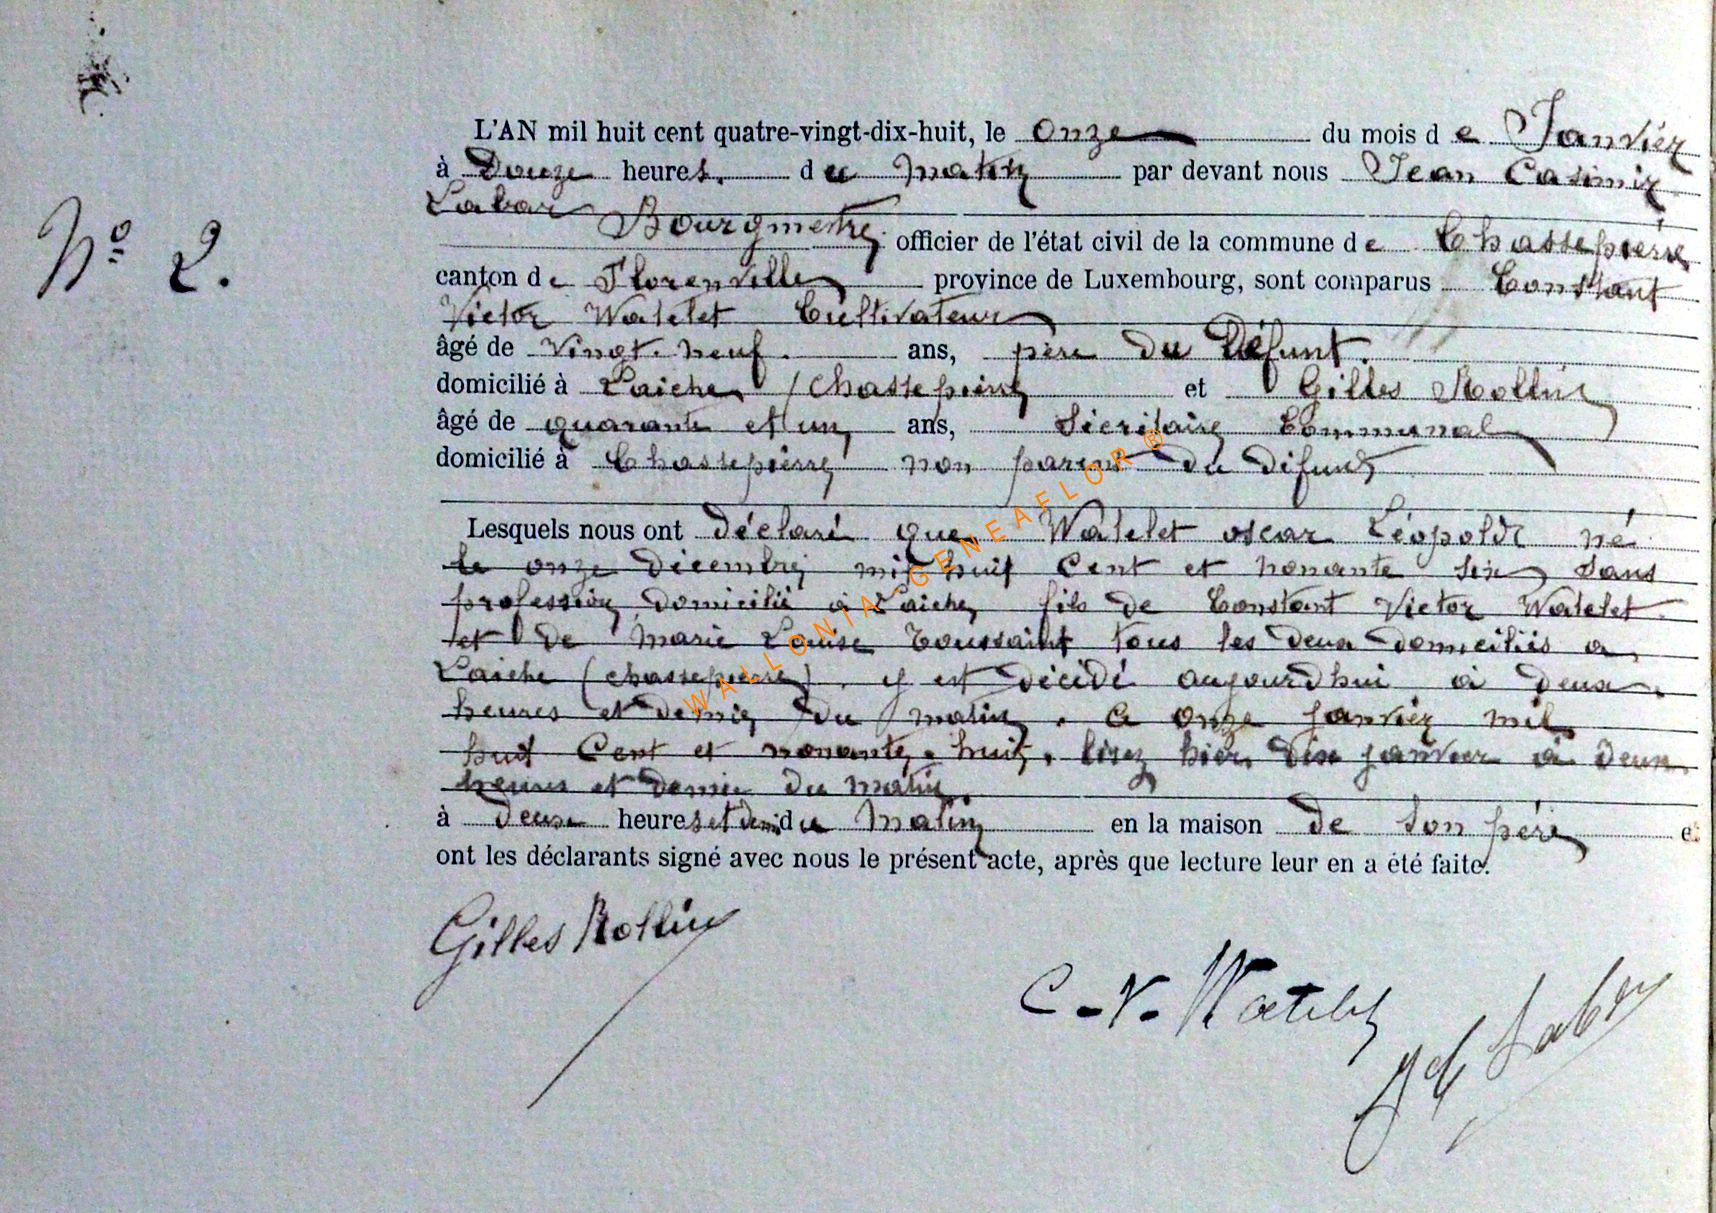 L'AN mil huit cent quatre-vingt-dix-huit, le onze du mois de Janvier
à Douze heures. du matin par devant nous Jean Casimir
Labar Bourgmestre officier de l'état civil de la commune de Chassepierre
Nº 2.
canton de Florenville province de Luxembourg, sont comparus Constant
Victor Watelet Cultivateur
âgé de vingt-neuf. ans, père du Défunt.
domicilié à Laiche (Chassepierre et Gilles Rollin
âgé de quarante et un, ans, Sécrétaire Communal
domicilié à Chassepierre non parent du défunt
Lesquels nous ont déclaré que Watelet oscar Léopold né
le onze Décembre mil huit Cent et nonante six, sans
profession, domicilié à Laiche, fils de Constant Victor Watelet
et de Marie Louise Toussaint tous les deux domiciliés a
Laiche (chassepierre), y est décédé aujourdhui à deux
heures et demie, du matin. Ce onze janvier mil
huit Cent et nonante-huit. lisez hier Dix janvier à deux
heures et demie du matin.
à deux heures et demi du Matin en la maison de son père et
ont les déclarants signé avec nous le présent acte, après que lecture leur en a été faite.
Gilles Rollin
C-V-Watelet
WALLONIA-GENEAFLOR®